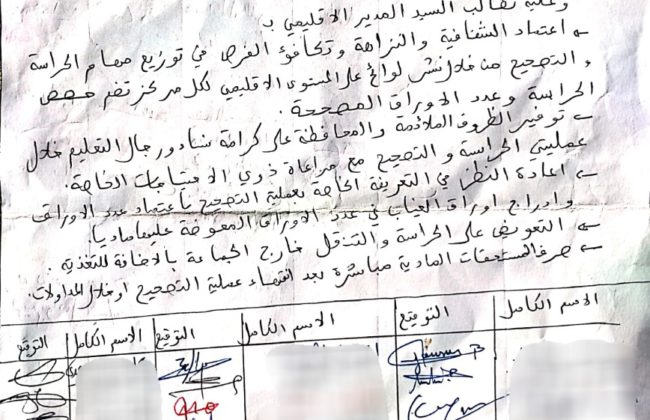 وعليه نطالب السيد المدير الاقليمي ب
ـ اعتماد الشفافية والنزاهة وتكافؤ الفرص في توزيع مهام الحراسة
و التصحيح من خلال نشر لوائح على المستوى الاقليمي لكل مركز تضم حصص
الحراسة وعدد الاوراق المصححة.
ـ توفير الظروف الملائمة والمحافظة على كرامة نساء ورجال التعليم خلال
عمليتي الحراسة و التصحيح مع مراعاة ذوي الاحتياجات الخاصة.
ـ اعادة النظر في التعويضات الخاصة بعملية التصحيح باعتماد عدد الاوراق
و ادراج اوراق الغياب في عدد الاوراق المعوضة عليها ماديا.
ـ التعويض على الحراسة والتنقل خارج الجماعة بالاضافة للتغذية.
ـ صرف المستحقات المادية مباشرة بعد انتهاء عملية التصحيح او خلال المداولات.
الاسم الكامل التوقيع الاسم الكامل التوقيع الاسم الكامل التوقيع